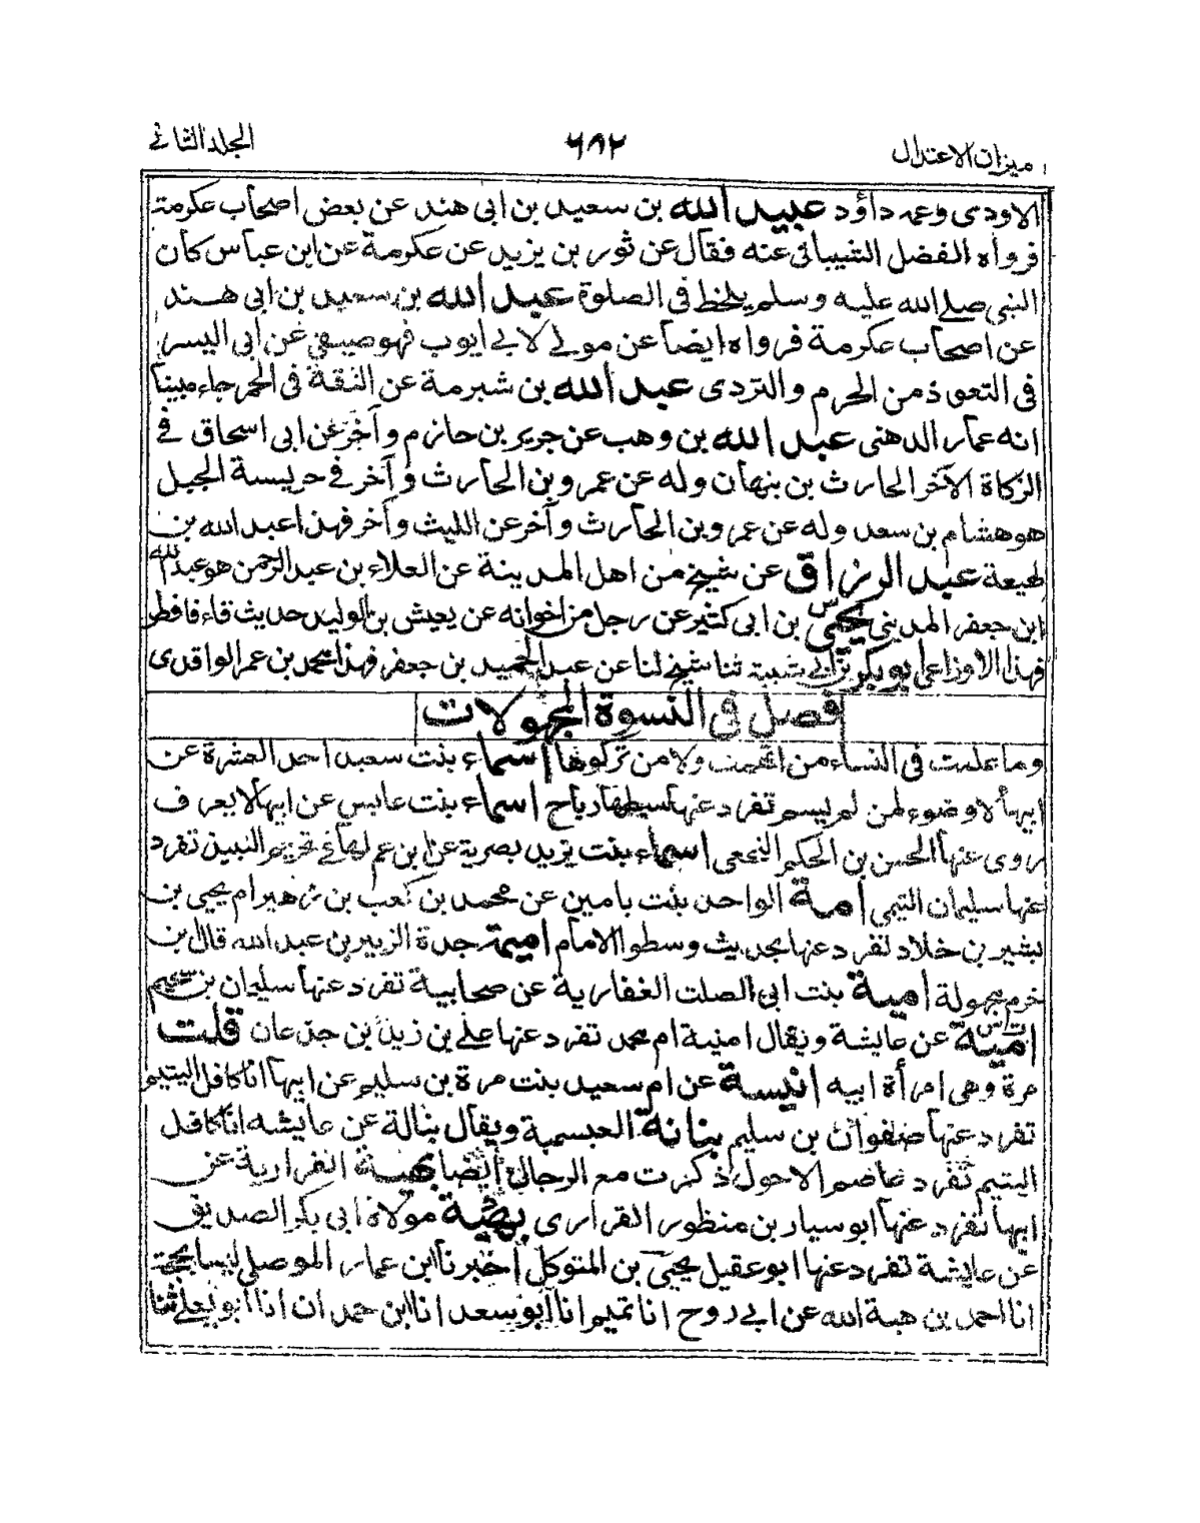 ميزان الاعتدال ٦٨٢ الجلد الثاني
الاودى وعمه داؤد عبيد الله بن سعيد بن ابى هند عن بعض اصحاب عكرمة
فرواه الفضل الشيبانى عنه فقال عن ثور بن يزيد عن عكرمة عن ابن عباس كان
النبى صلى الله عليه وسلم يلحظ فى الصلوة عبد الله بن سعيد بن ابى هند
عن اصحاب عكرمة فرواه ايضا عن مولى لابى ايوب فهو صيفى عن ابى اليسر
فى التعوذ من الهرم والتردى عبد الله بن شبرمة عن الثقة فى الخمر جاء مبينا
انه عمار الدهنى عبد الله بن وهب عن جرير بن حازم وآخر عن ابى اسحاق فى
الزكاة الآخر الحارث بن بنهان وله عن عمرو بن الحارث وآخر فى حريسة الجبل
هو هشام بن سعد وله عن عمرو بن الحارث وآخر عن الليث وآخر فهذا عبد الله بن
لهيعة عبد الرزاق عن شيخ من اهل المدينة عن العلاء بن عبد الرحمن هو عبد الله
ابن جعفر المدينى يحيى بن ابى كثير عن رجل من اخوانه عن يعيش بن الوليد حديث قاء فافطر
فهذا الاوزاعى ابو بكر بن ابى شيبة ثنا شيخ لنا عن عبد الحميد بن جعفر فهذا محمد بن عمر الواقدى
فصل فى النسوة المجهولات
وما علمت فى النساء من اتهمت ولا من تركوها اسماء بنت سعيد احد العشرة عن
ابيها لا وضوء لمن لم يسم تفرد عنها رباح اسماء بنت عابس عن ابيها لا يعرف
روى عنها الحسن بن الحكم النخعى اسماء بنت يزيد بصرية عن ابن عم لها فى تحريم النبيذ تفرد
عنها سليمان التيمى امة الواحد بنت يامين عن محمد بن كعب بن زهير ام يحيى بن
بشير بن خلاد تفرد عنها بحديث وسطوا الامام اميمة جدة الزبير بن عبد الله قال بن
خرم مجهولة امية بنت ابى الصلت الغفارية عن صحابية تفرد عنها سليمان بن سحيم
امية عن عايشة ويقال امنية ام محمد تفرد عنها على بن زيد بن جدعان قلت
مرة وهى امرأة ابيه انيسة عن ام سعيد بنت مرة بن سليم عن ابيها انا كافل اليتيم
تفرد عنها صفوان بن سليم بنانة العبسمية ويقال بنالة عن عايشه انا كافل
اليتيم تفرد عاصم الاحول ذكرت مع الرجال ايضا بهيسة الفزارية عن
ابيها تفرد عنها ابو سيار بن منظور الفزارى بهية مولاة ابى بكر الصديق
عن عايشة تفرد عنها ابو عقيل يحيى بن المتوكل اخبرنا ابن عمار الموصلى ليسا بحجة
انا احمد بن هبة الله عن ابى روح انا تميم انا ابو سعد انا ابن حمدان انا ابو يعلى ثنا